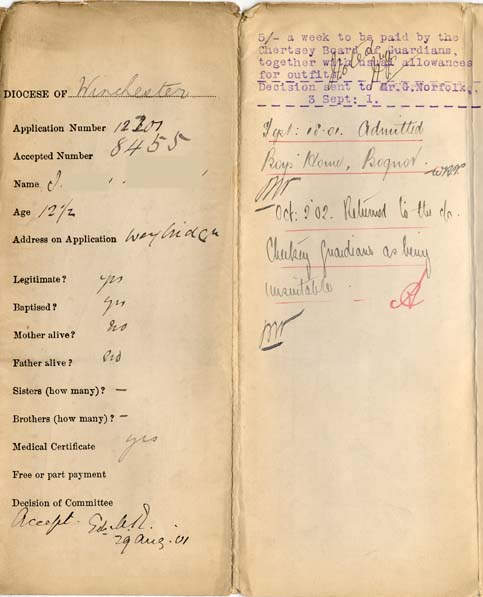 DIOCESE OF Winchester
Application Number 12201
Accepted Number 8455
Name J.
Age 12½
Address on Application Weybridge
Legitimate? yes
Baptised? yes
Mother alive? No
Father alive? No
Sisters (how many)? —
Brothers (how many)? —
Medical Certificate yes
Free or part payment
Decision of Committee
Accept
29 Aug. 01
5/- a week to be paid by the
Chertsey Board of Guardians,
together with usual allowances
for outfit.
Decision sent to Mr.G.Norfolk.,
3 Sept: 1.
Sept: 18.01. Admitted
Boys' Home, Bognor.
Oct: 9 '02. Returned to the c/o.
Chertsey Guardians as being
unsuitable.